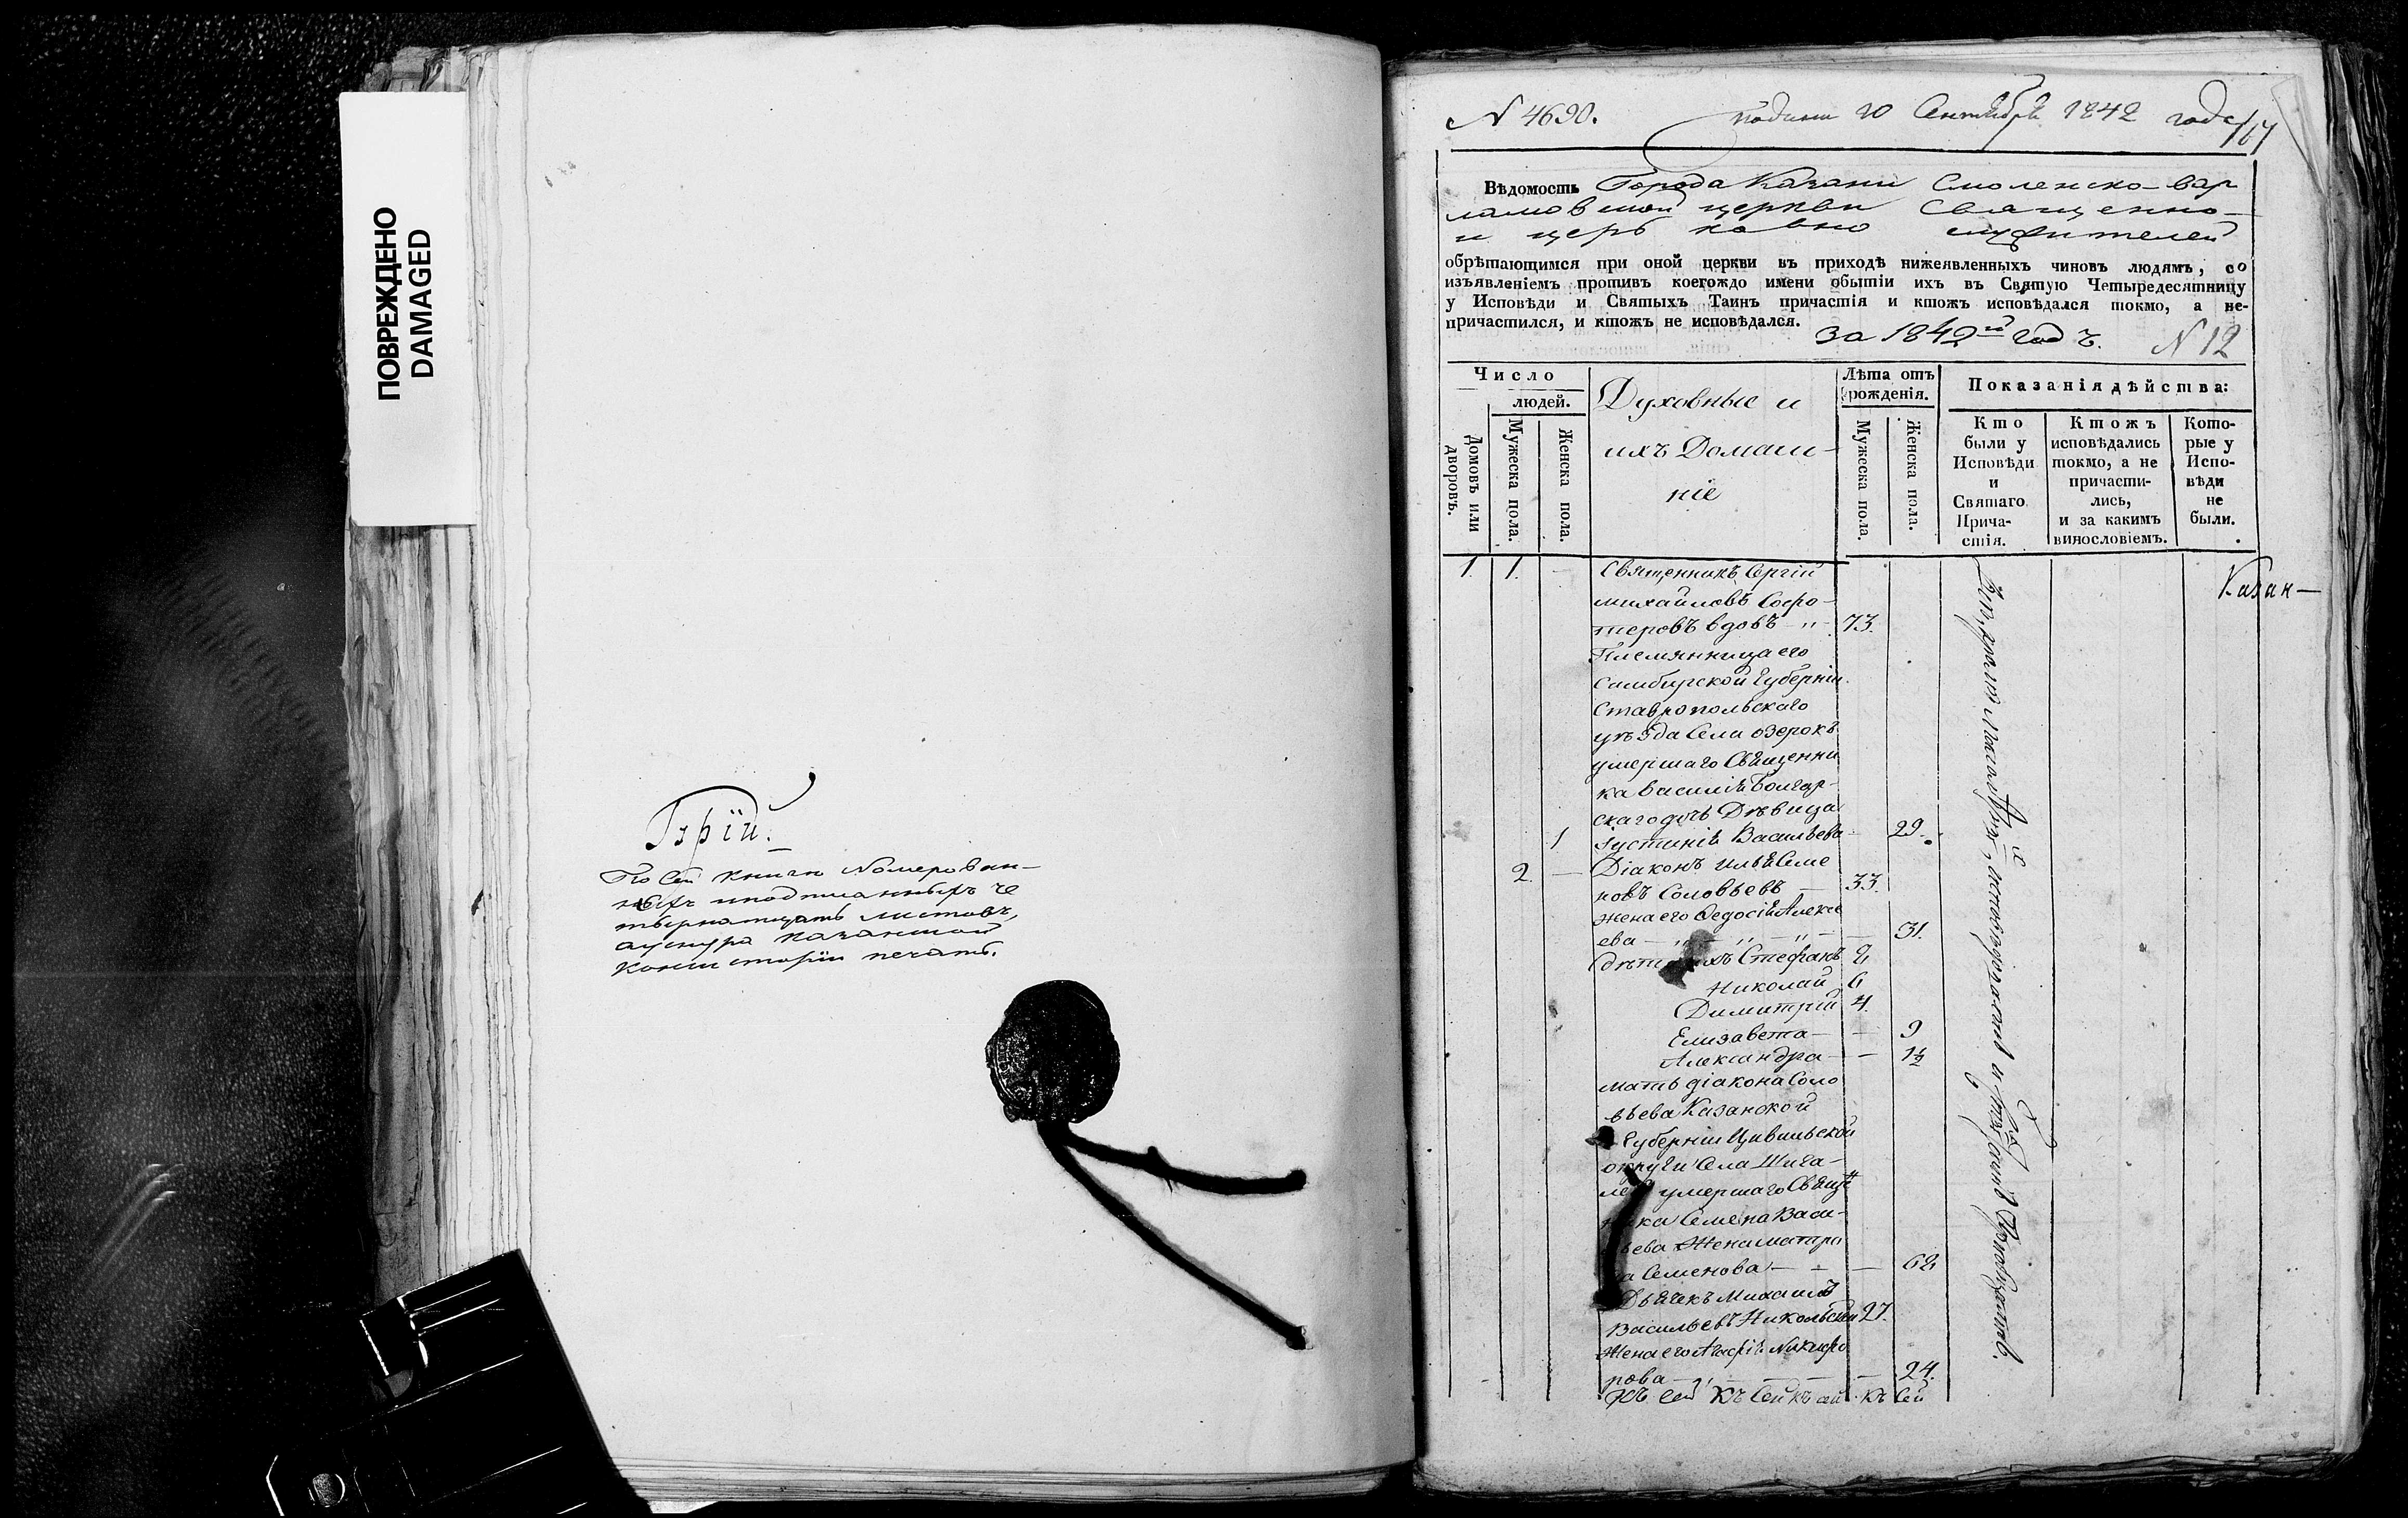 ПОВРЕЖДЕНО
DAMAGED
По сей книги номерован-
ныхъ и подписанныхъ че
тырнатцать листовъ,
а у снура Казанской
Консисторіи печать.
N 4690.
подана 20 Сентября 1842 года
Вѣдомость Города Казани Смоленско-Вар
ламовской церкви Священно-
и церь ковно служителей
обрѣтающимся при оной церкви въ приходѣ нижеявленныхъ чиновъ людямъ, со
изъявленіемъ противъ коегождо имени о бытіи ихъ въ Святую Четыредесятницу
у Исповѣди и Святыхъ Таинъ причастія и ктожъ исповѣдался токмо, а не-
причастился, и ктожъ не исповѣдался.
за 1842й годъ.
N 12
Число
людей.
Домовъ или дворовъ.
Мужеска пола.
Женска пола.
Духовные и
ихъ Домаш-
ніе
Лѣта отъ
рожденія.
Мужеска пола.
Женска пола.
Показанія дѣйства:
Кто
были у
Исповѣди
и
Святаго
Прича-
стія.
Ктожъ
исповѣдались
токмо, а не
причасти-
лись,
и за какимъ
винословіемъ.
Кото-
рые у
Испо-
вѣди
не
были.
Казан-
1. 1. — Священникъ Сергій
Михайловъ Софо-
теровъ вдовъ 73.
Племянница его
Симбирской Губерніи
Ставропольскаго
уѣзда Села Озерокъ
умершаго Священни
ка Василія Болгар-
скаго дочь Дѣвица
1 Іустинія Васильева 29.
2 — Діаконъ Илья Семе
новъ Соловьевъ — 33.
Жена его Ѳедосія Алексе
ева — 31.
Дѣти ихъ Стефанъ
Николай 6
Димитрій 4.
Елизавета — 9
Александра — 1½
Мать діакона Соло
вьева Казанской
Губерніи Цивильской
округи Села Шига-
лей умершаго Священ
ника Семена Васи-
льева Жена Матро
на Семенова — 62
Дьячекъ Михаилъ
Васильевъ Никольскій 27.
Жена его Никифо
рова — 24.